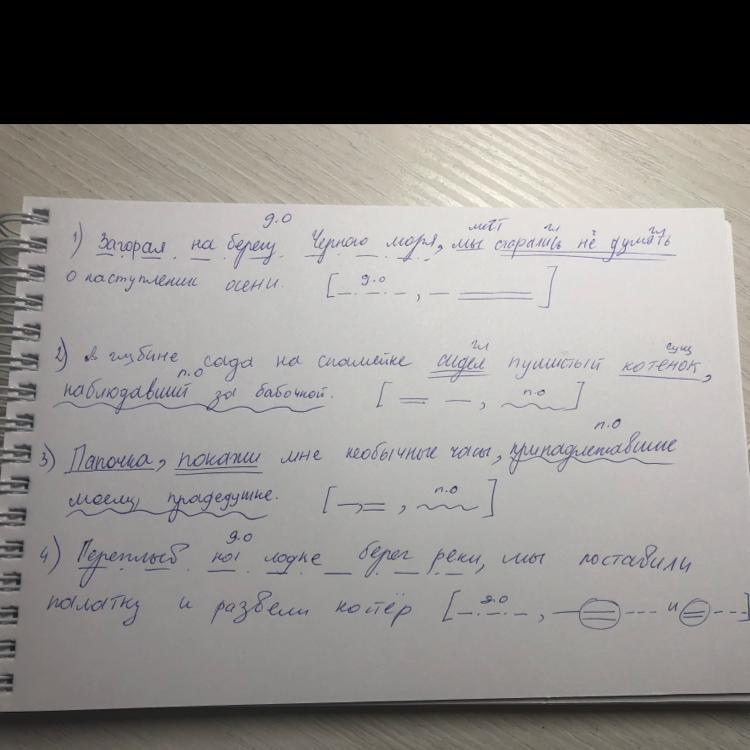 д.о
мест гл гл
1) Загорая на берегу Черного моря, мы старались не думать
о наступлении осени. [д.о, ]
гл сущ
2) в глубине сада на скамейке сидел пушистый котенок,
п.о
наблюдавший за бабочкой. [ , п.о ]
п.о
3) Папочка, покажи мне необычные часы, принадлежавшие
моему прадедушке. [ , , п.о ]
д.о
4) Переплыв на лодке берег реки, мы поставили
палатку и развели костёр [д.о, и ]